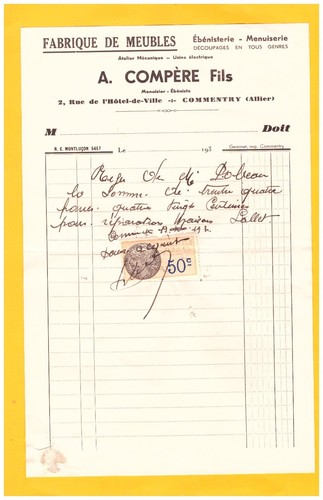 FABRIQUE DE MEUBLES
Ébénisterie - Menuiserie
DÉCOUPAGES EN TOUS GENRES
Atelier Mécanique - Usine électrique
A. COMPÈRE Fils
Menuisier - Ébéniste
2, Rue de l'Hôtel-de-Ville -:- COMMENTRY (Allier)
M Doit
R. C. MONTLUÇON 5457 Le 195 Geninet, imp. Commentry
Reçu de M
la Somme de trente quatre
francs quatre vingt Centimes
pour réparation
50c